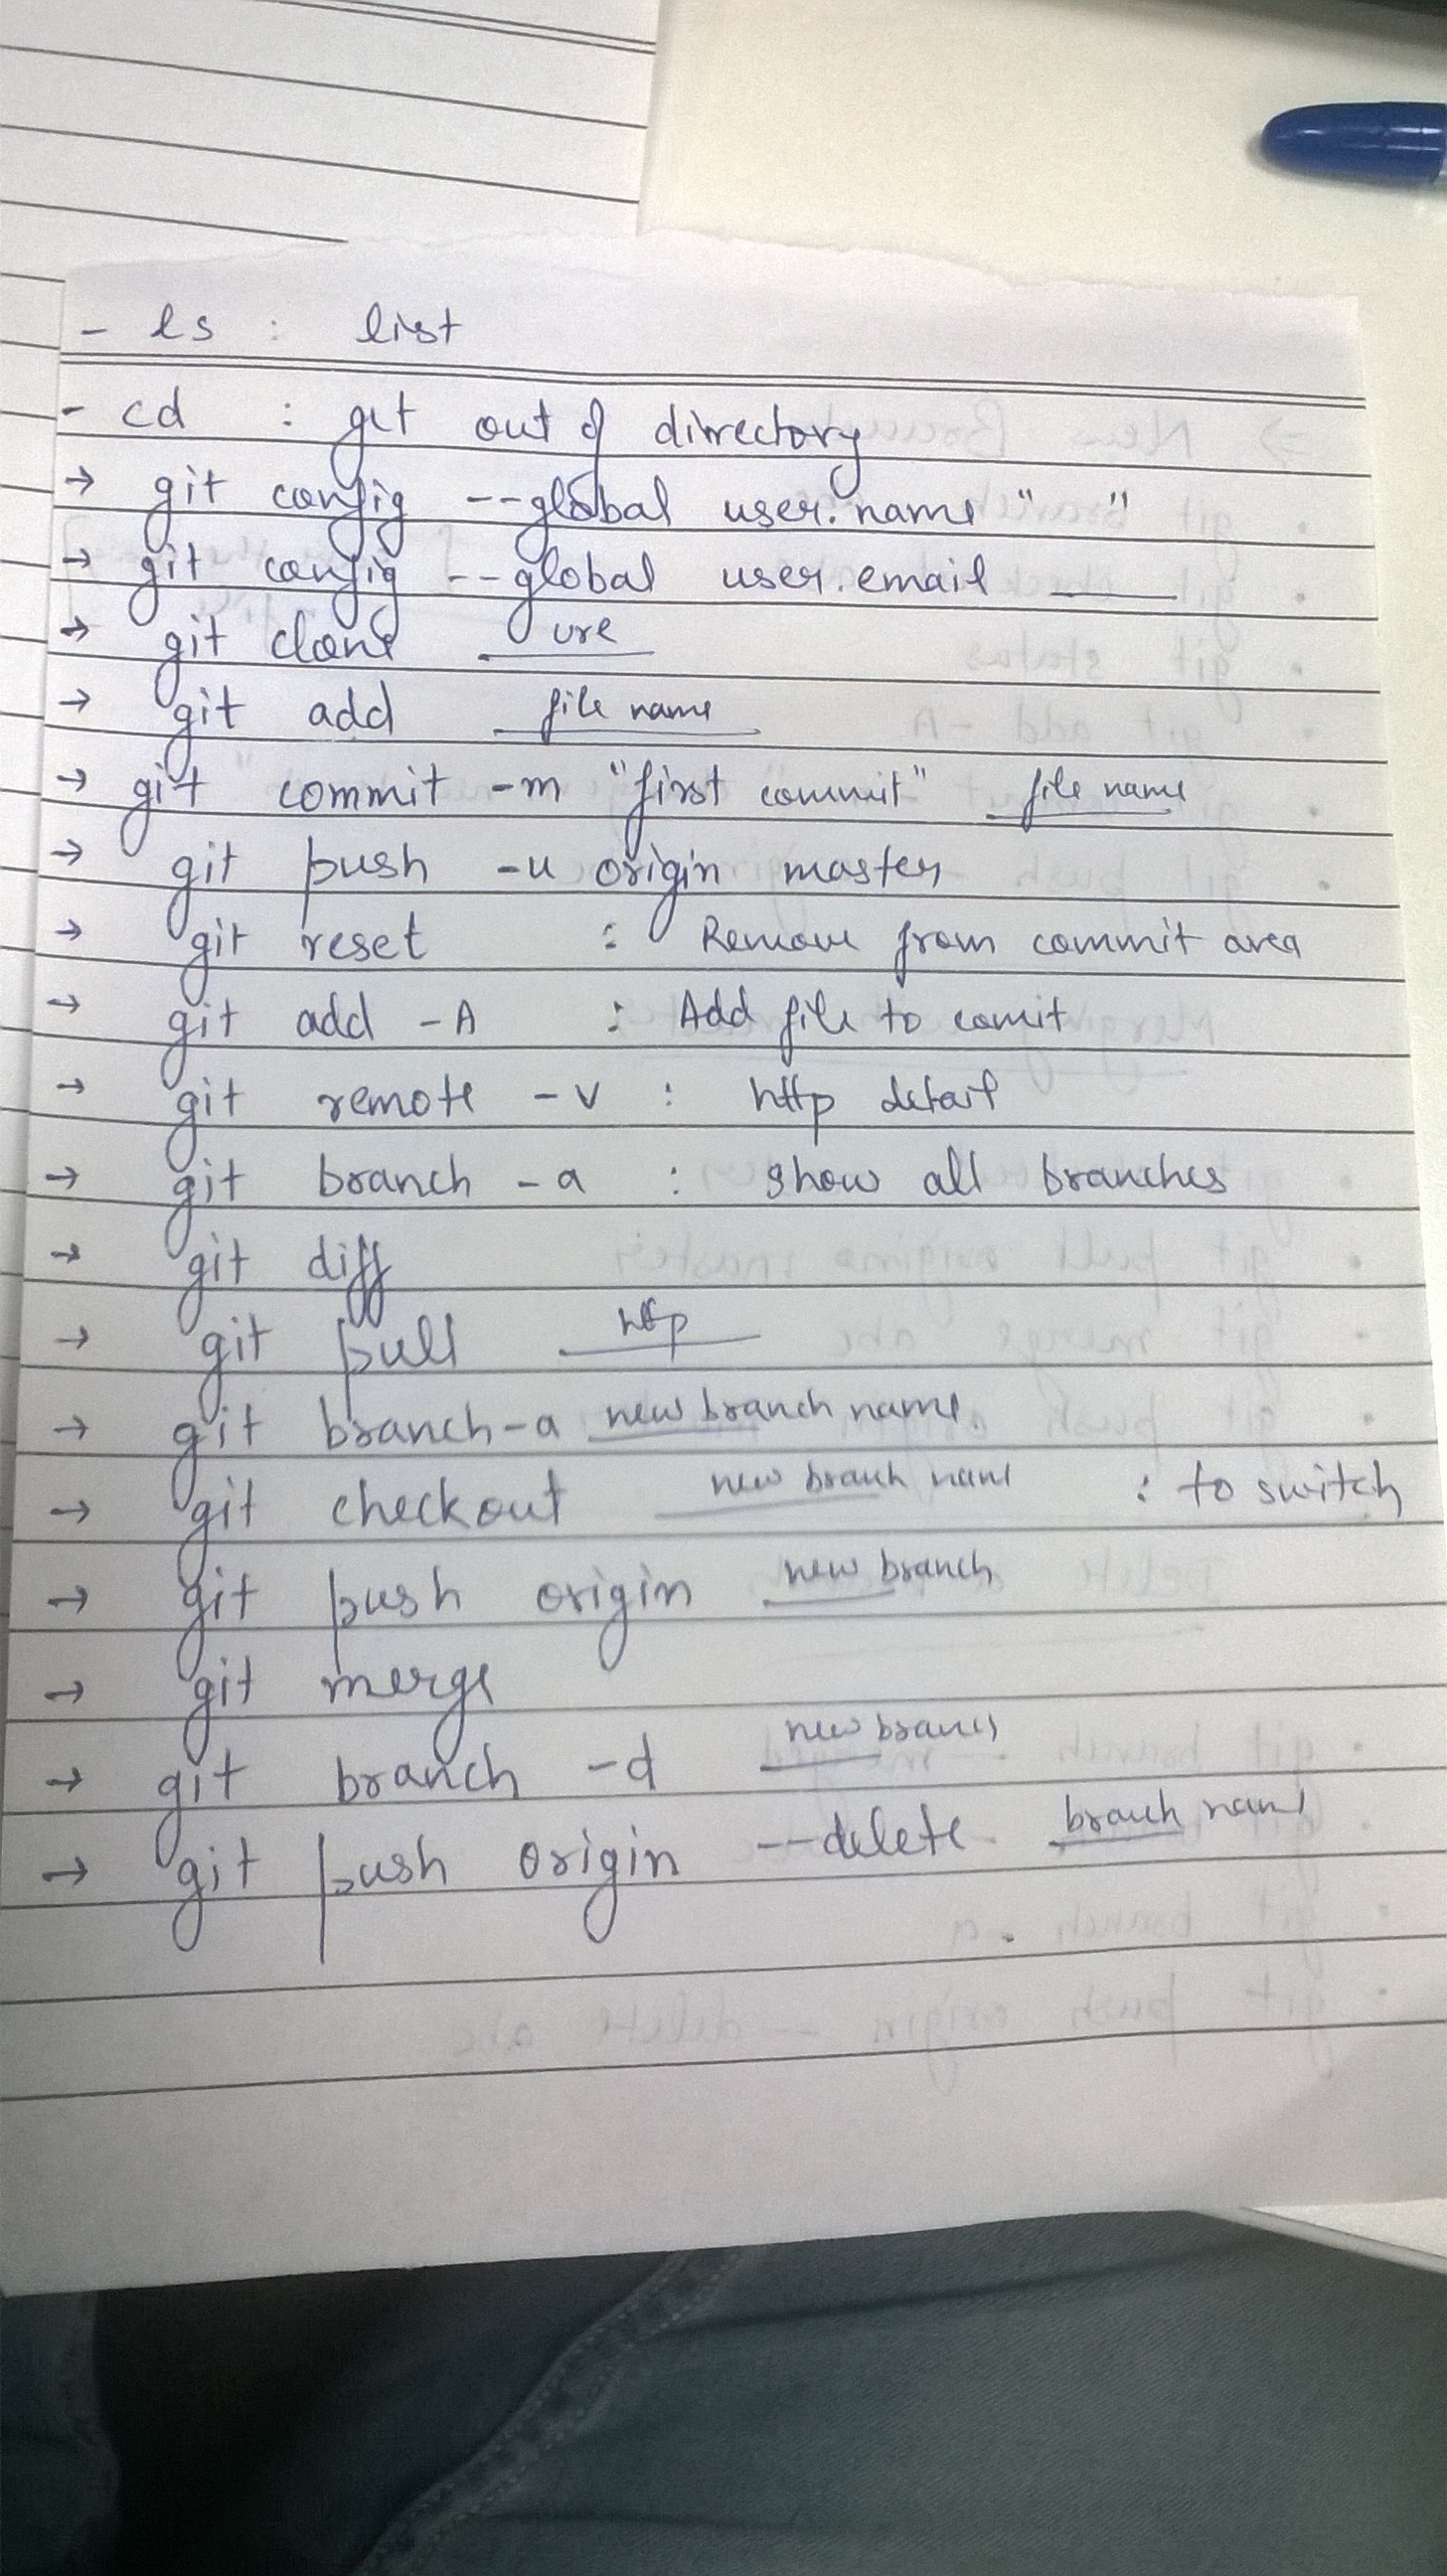 - ls : list
- cd : get out of directory
→ git config --global user.name " "
→ git config --global user.email ____
→ git clone url
→ git add file name
→ git commit -m "first commit" file name
→ git push -u origin master
→ git reset : Remove from commit area
→ git add -A : Add file to comit
→ git remote -v : http detail
→ git branch -a : show all branches
→ git diff
→ git pull http
→ git branch -a new branch name
→ git checkout new branch name : to switch
→ git push origin new branch
→ git merge
→ git branch -d new branch
→ git push origin --delete branch name